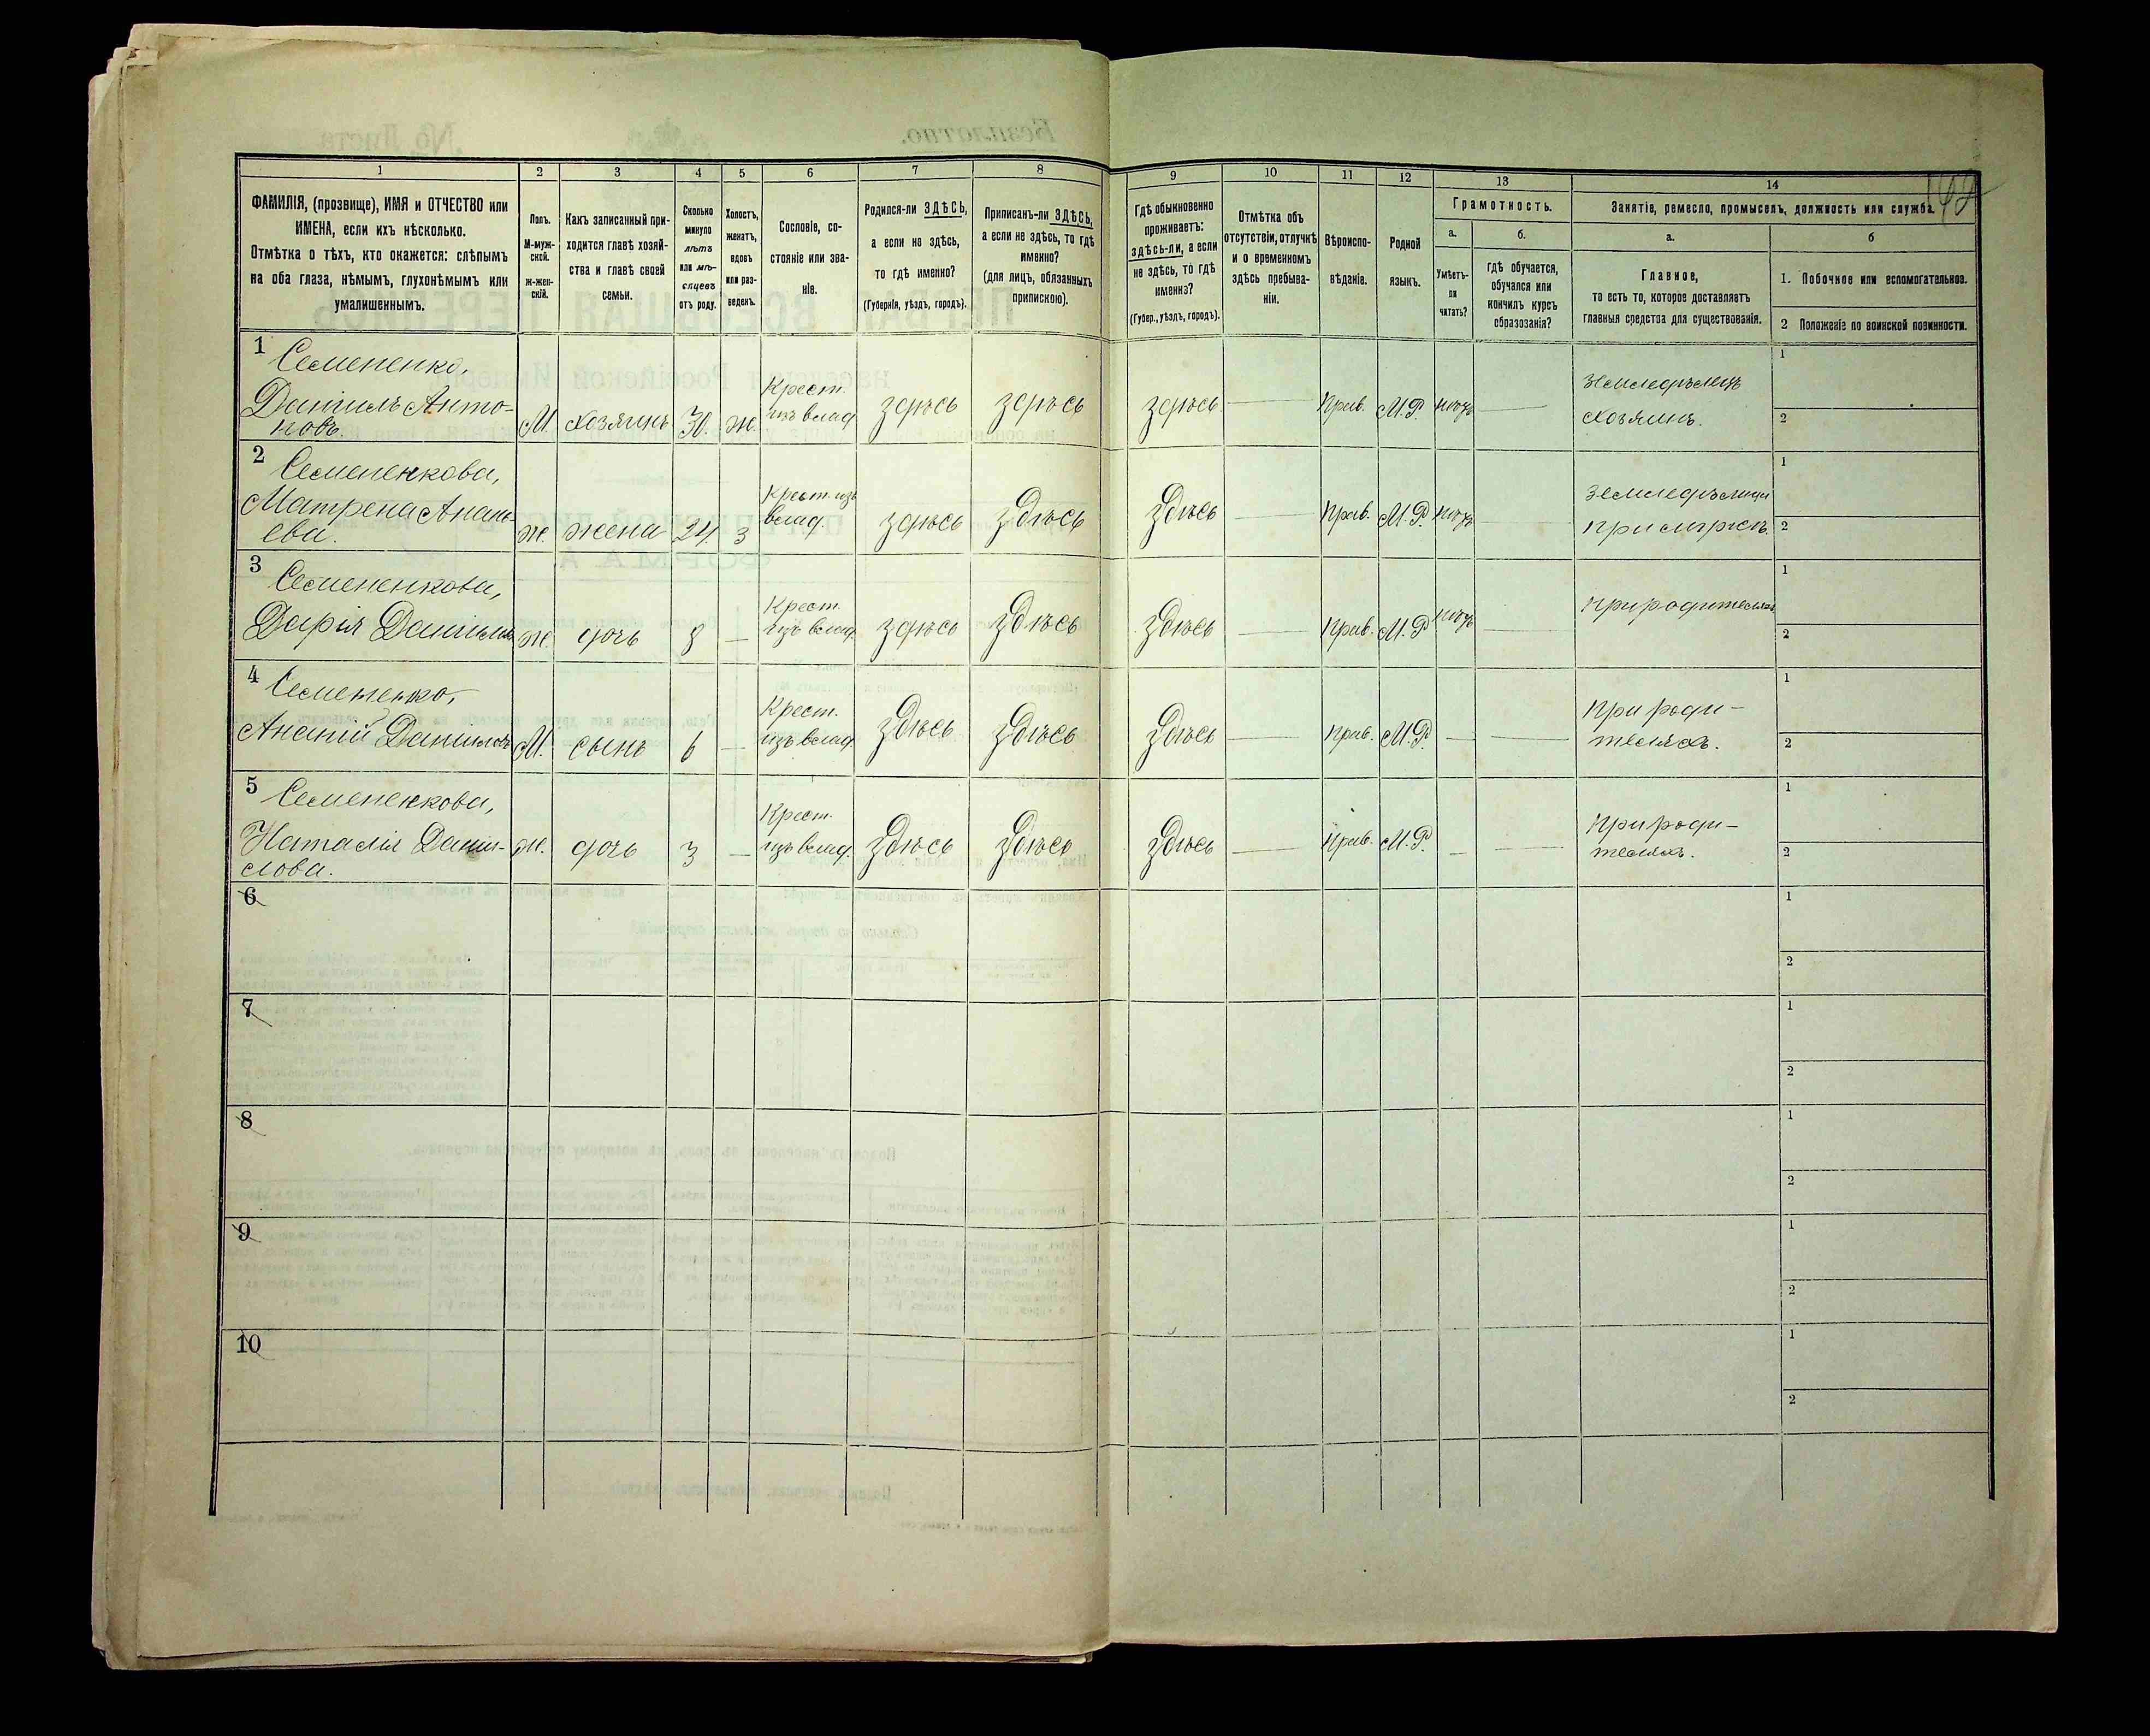 1 2 3 4 5 6 7 8 9 10 11 12 13 14
ФАМИЛІЯ, (прозвище), ИМЯ и ОТЧЕСТВО или
ИМЕНА, если ихъ нѣсколько.
Отмѣтка о тѣхъ, кто окажется: слѣпымъ
на оба глаза, нѣмымъ, глухонѣмымъ или
умалишеннымъ.
Полъ.
М-муж-
ской.
ж-жен-
скій.
Какъ записанный при-
ходится главѣ хозяй-
ства и главѣ своей
семьи.
Сколько
минуло
лѣтъ
или мѣ-
сяцевъ
отъ роду.
Холостъ,
женатъ,
вдовъ
или раз-
веденъ.
Сословіе, со-
стояніе или зва-
ніе.
Родился-ли ЗДѢСЬ,
а если не здѣсь,
то гдѣ именно?
(Губернія, уѣздъ, городъ).
Приписанъ-ли ЗДѢСЬ,
а если не здѣсь, то гдѣ
именно?
(для лицъ, обязанныхъ
припискою).
Гдѣ обыкновенно
проживаетъ:
здѣсь-ли, а если
не здѣсь, то гдѣ
именно?
(Губер., уѣздъ, городъ).
Отмѣтка объ
отсутствіи, отлучкѣ
и о временномъ
здѣсь пребыва-
ніи.
Вѣроиспо-
вѣданіе.
Родной
языкъ.
Грамотность.
а.
Умѣетъ-
ли
читать?
б.
гдѣ обучается,
обучался или
кончилъ курсъ
образованія?
Занятіе, ремесло, промыселъ, должность или служба.
а.
Главное,
то есть то, которое доставляетъ
главныя средства для существованія.
б
1. Побочное или вспомогательное.
2 Положеніе по воинской повинности.
1 Семененко,
Даніилъ Анто-
новъ.
М. хозяинъ 30. ж.
Крест.
изъ влад.
здѣсь здѣсь здѣсь — Прав. М.Р. нѣтъ —
земледѣлецъ
хозяинъ.
1
2
2 Семененкова,
Матрена Анань-
ева.
ж. жена 24 з
Крест. изъ
влад.
здѣсь здѣсь здѣсь — Прав. М.Р. нѣтъ —
земледѣлица
при мужѣ.
1
2
3 Семененкова,
Дарія Данилов.
ж. дочь 8 —
Крест.
изъ влад.
здѣсь здѣсь здѣсь — Прав. М.Р. нѣтъ —
при родителяхъ
1
2
4 Семененко,
Даниловъ
М. сынъ 6 —
Крест.
изъ влад.
здѣсь здѣсь здѣсь — прав. М.Р. — —
при роди-
теляхъ.
1
2
5 Семененкова,
Наталія Дани-
лова.
ж. дочь 3 —
Крест.
изъ влад.
здѣсь здѣсь здѣсь — прав. М.Р. — —
при роди-
теляхъ.
1
2
6
1
2
7
1
2
8
1
2
9
1
2
10
1
2